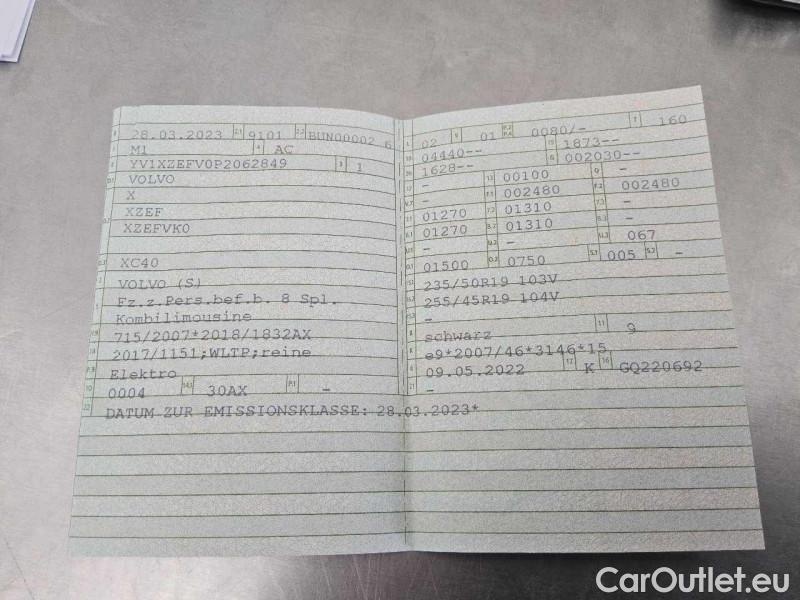 28.03.2023 2.1 9101 2.2 BUN00002 6
M1 4 AC
YV1XZEFV0P2062849 3 1
VOLVO
X
XZEF
XZEFVK0
XC40
VOLVO (S)
Fz.z.Pers.bef.b. 8 Spl.
Kombilimousine
715/2007*2018/1832AX
2017/1151;WLTP;reine
Elektro
10 0004 14.1 30AX P.1 -
22 DATUM ZUR EMISSIONSKLASSE: 28.03.2023*
L 02 9 01 P.2 P.4 0080/- T 160
18 04440-- 19 1873--
20 1628-- G 002030--
- 13 00100 Q -
- F.1 002480 F.2 002480
01270 7.2 01310 -
01270 8.2 01310 -
- U.2 - U.3 067
O.1 01500 O.2 0750 S.1 005 S.2 -
15.1 235/50R19 103V
15.2 255/45R19 104V
-
R schwarz 11 9
K e9*2007/46*3146*15
6 09.05.2022 17 K 16 GQ220692
21 -
CarOutlet.eu